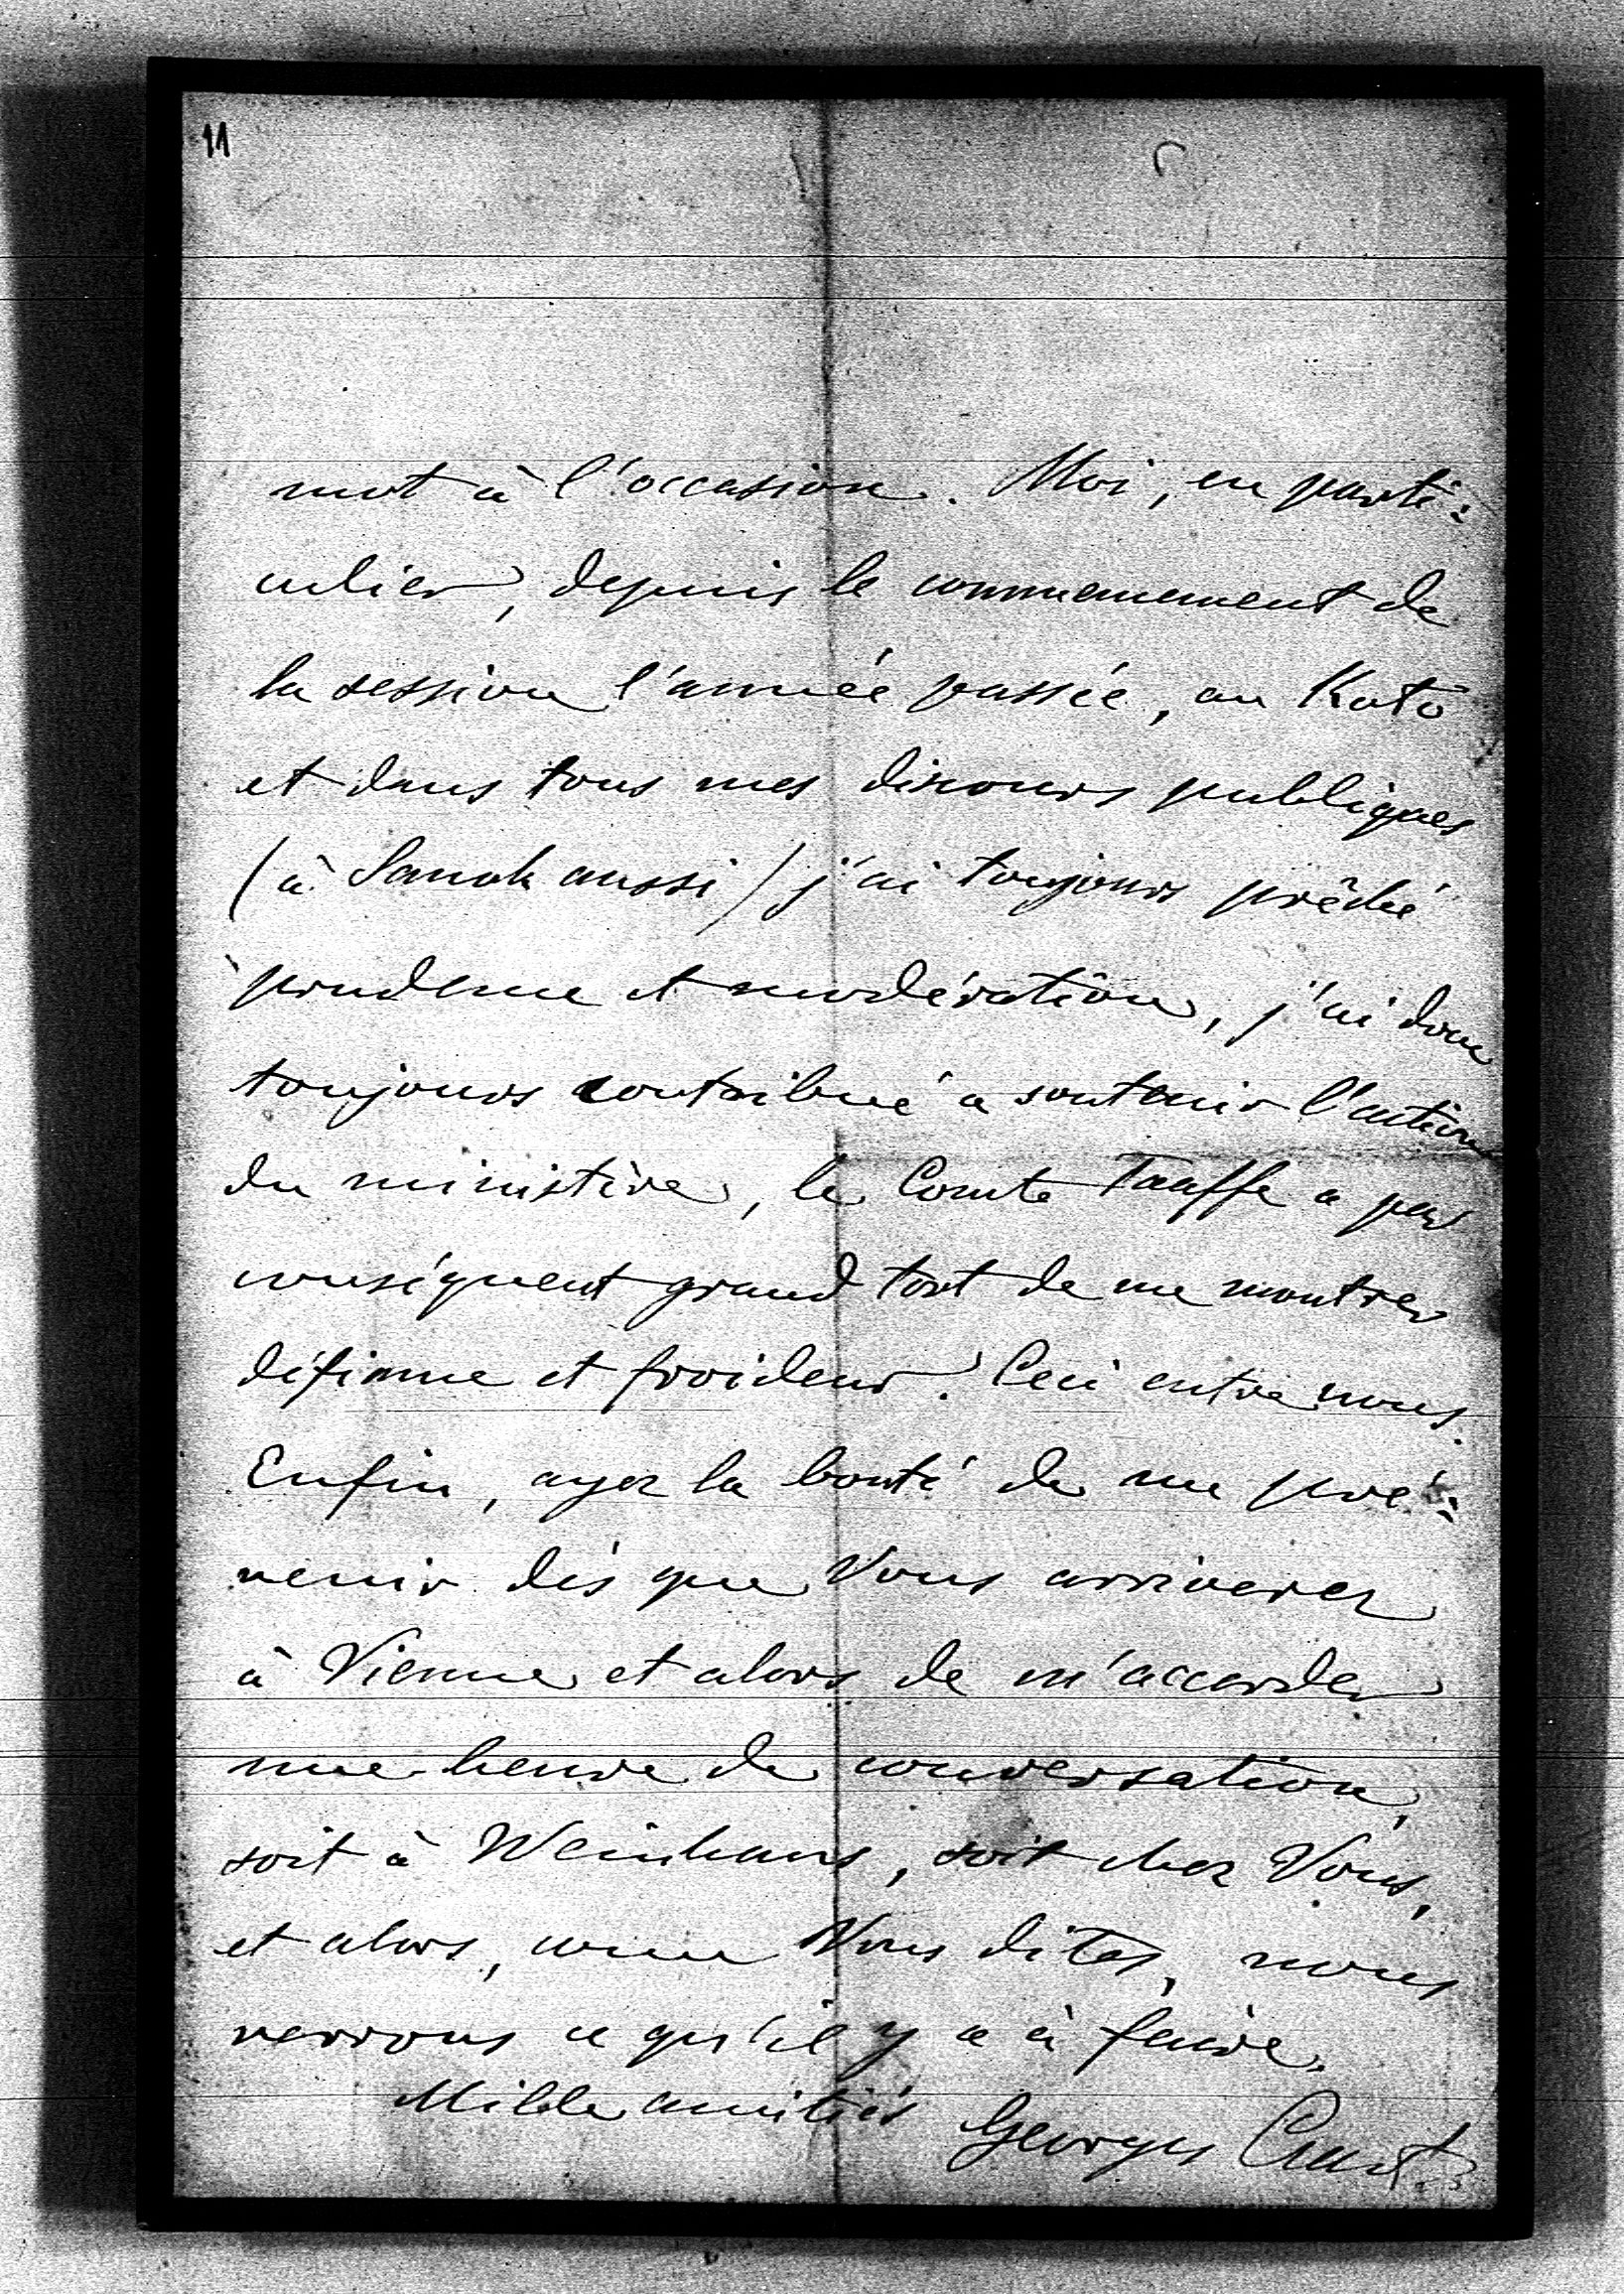 11
mot à l'occasion. Moi, en parti:
culier, depuis le commencement de
la session l'année passée, au Koło
et dans tous mes discours publiques
(à Sanok aussi) j'ai toujours prêché
prudence et modération, j'ai donc
toujours contribué a soutenir l'action
du ministère, le Comte Taaffe a par
conséquent grand tort de me montrer
défiance et froideur. Ceci entre nous.
Enfin, ayez la bonté de me pré:
venir dès que Vous arriverez
à Vienne et alors de m'accorder
une heure de conversation,
soit à Weinhaus, soit chez Vous,
et alors, come Vous dites, nous
verrons ce qu'il y a à faire.
Mille amitiés Georges Czart